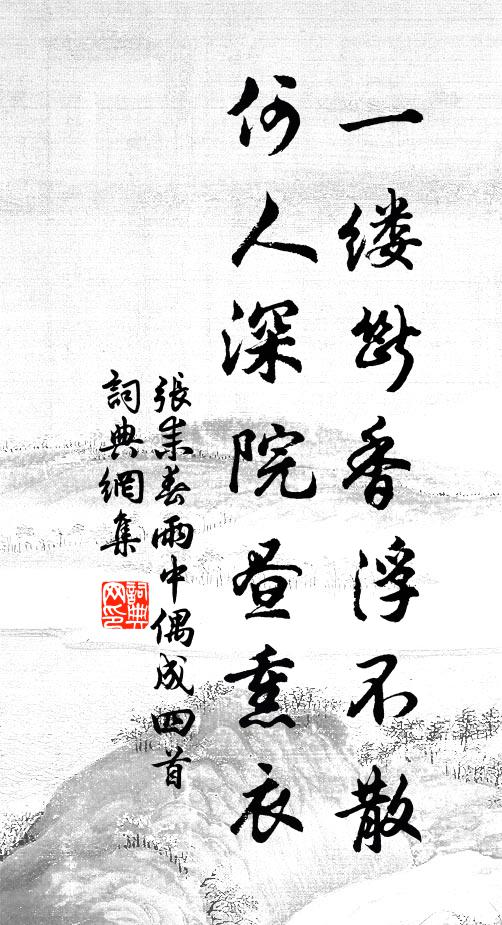 一缕断香浮不散
何人深院昼熏衣
張耒春雨中偶成四首
詞典網集
詞典网印